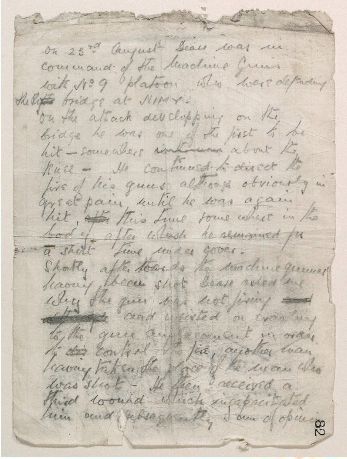 On 23rd August Dease was in
command of the Machine Guns
with No 9 platoon who were defending
the bridge at Nimy.
On the attack developping on the
bridge he was one of the first to be
hit – somewhere about the
knee – He continued to direct the
fire of his guns, although obviously in
great pain, until he was again
hit, this time some where in the
body after which he remained for
a short time under cover.
Shortly afterwards the machine gunner
having been shot Dease asked me
why the gun was not firing
and insisted on crawling
to the gun emplacement in order
to control the fire, another man
having taken the place of the man who
was shot – He then received a
third wound which incapacitated
him and subsequently, I am of opinion
82